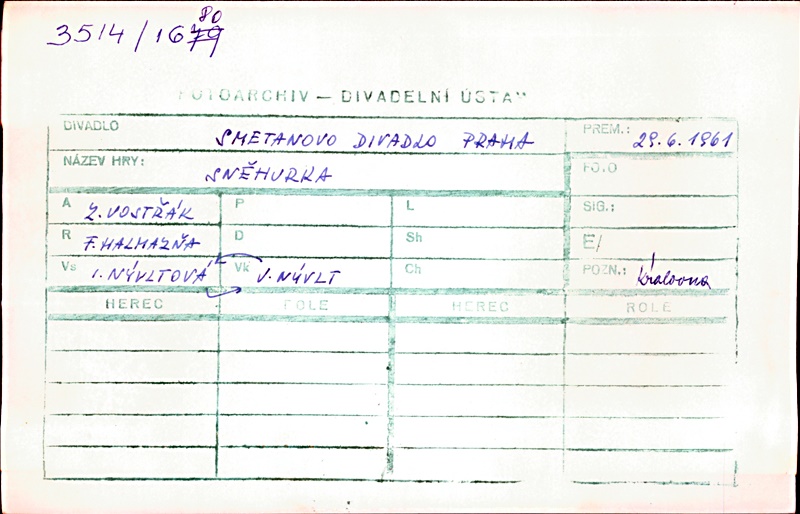 80
3514/1679
FOTOARCHIV — DIVADELNÍ ÚSTAV
DIVADLO SMETANOVO DIVADLO PRAHA PREM.: 29.6.1961
NÁZEV HRY: SNĚHURKA FOTO
A Z. VOSTŘÁK P L SIG.:
R F. HALMAZŇA D Sh E/
Vs I. NÝVLTOVÁ Vk V. NÝVLT Ch POZN.: Královna
HEREC ROLE HEREC ROLE